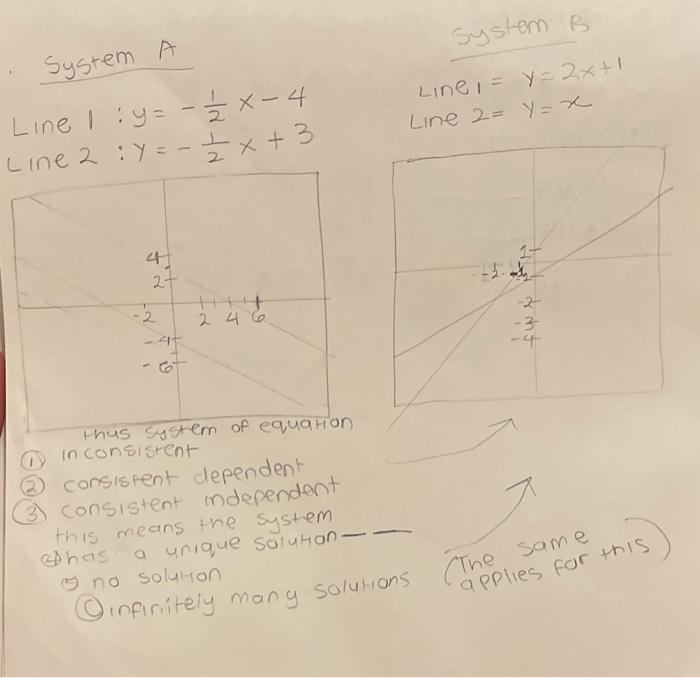 System A
Line 1 : y = - 1/2 x - 4
Line 2 : Y = - 1/2 x + 3
4
2
-2
2 4 6
-4
- 6
System B
Line 1 = Y = 2x+1
Line 2 = Y = x
-2
-3
-4
thus system of equation
① inconsistent
② consistent dependent
③ consistent independent
this means the system
has a unique solution — —
no solution
Ⓒ infinitely many solutions
(The same
applies for this)